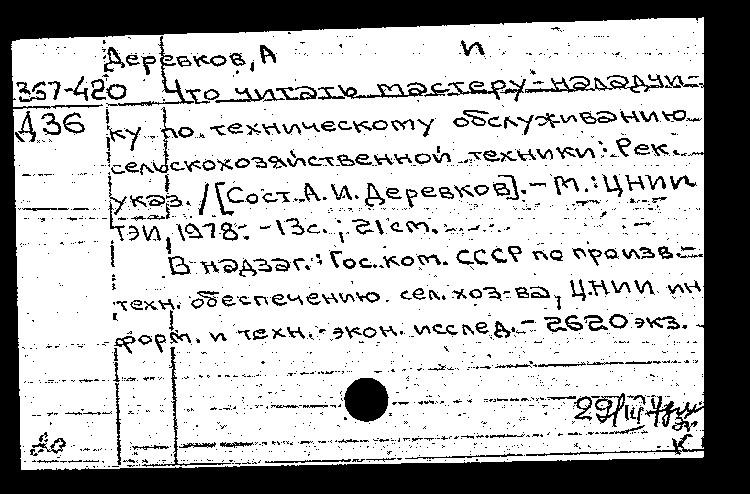 Деревков, А п
367-420 Что читать мастеру-наладчи-
Д36 ку по техническому обслуживанию
сельскохозяйственной техники: Рек.
указ. / [Сост. А. И. Деревков]. - М.: ЦНИИ
ТЭИ, 1978. - 13с. ; 21 см.
В надзаг.: Гос. ком. СССР по произв.-
техн. обеспечению сел. хоз-ва, ЦНИИ ин
форм. и техн.-экон. исслед. - 2620 экз.
29/III
20 К